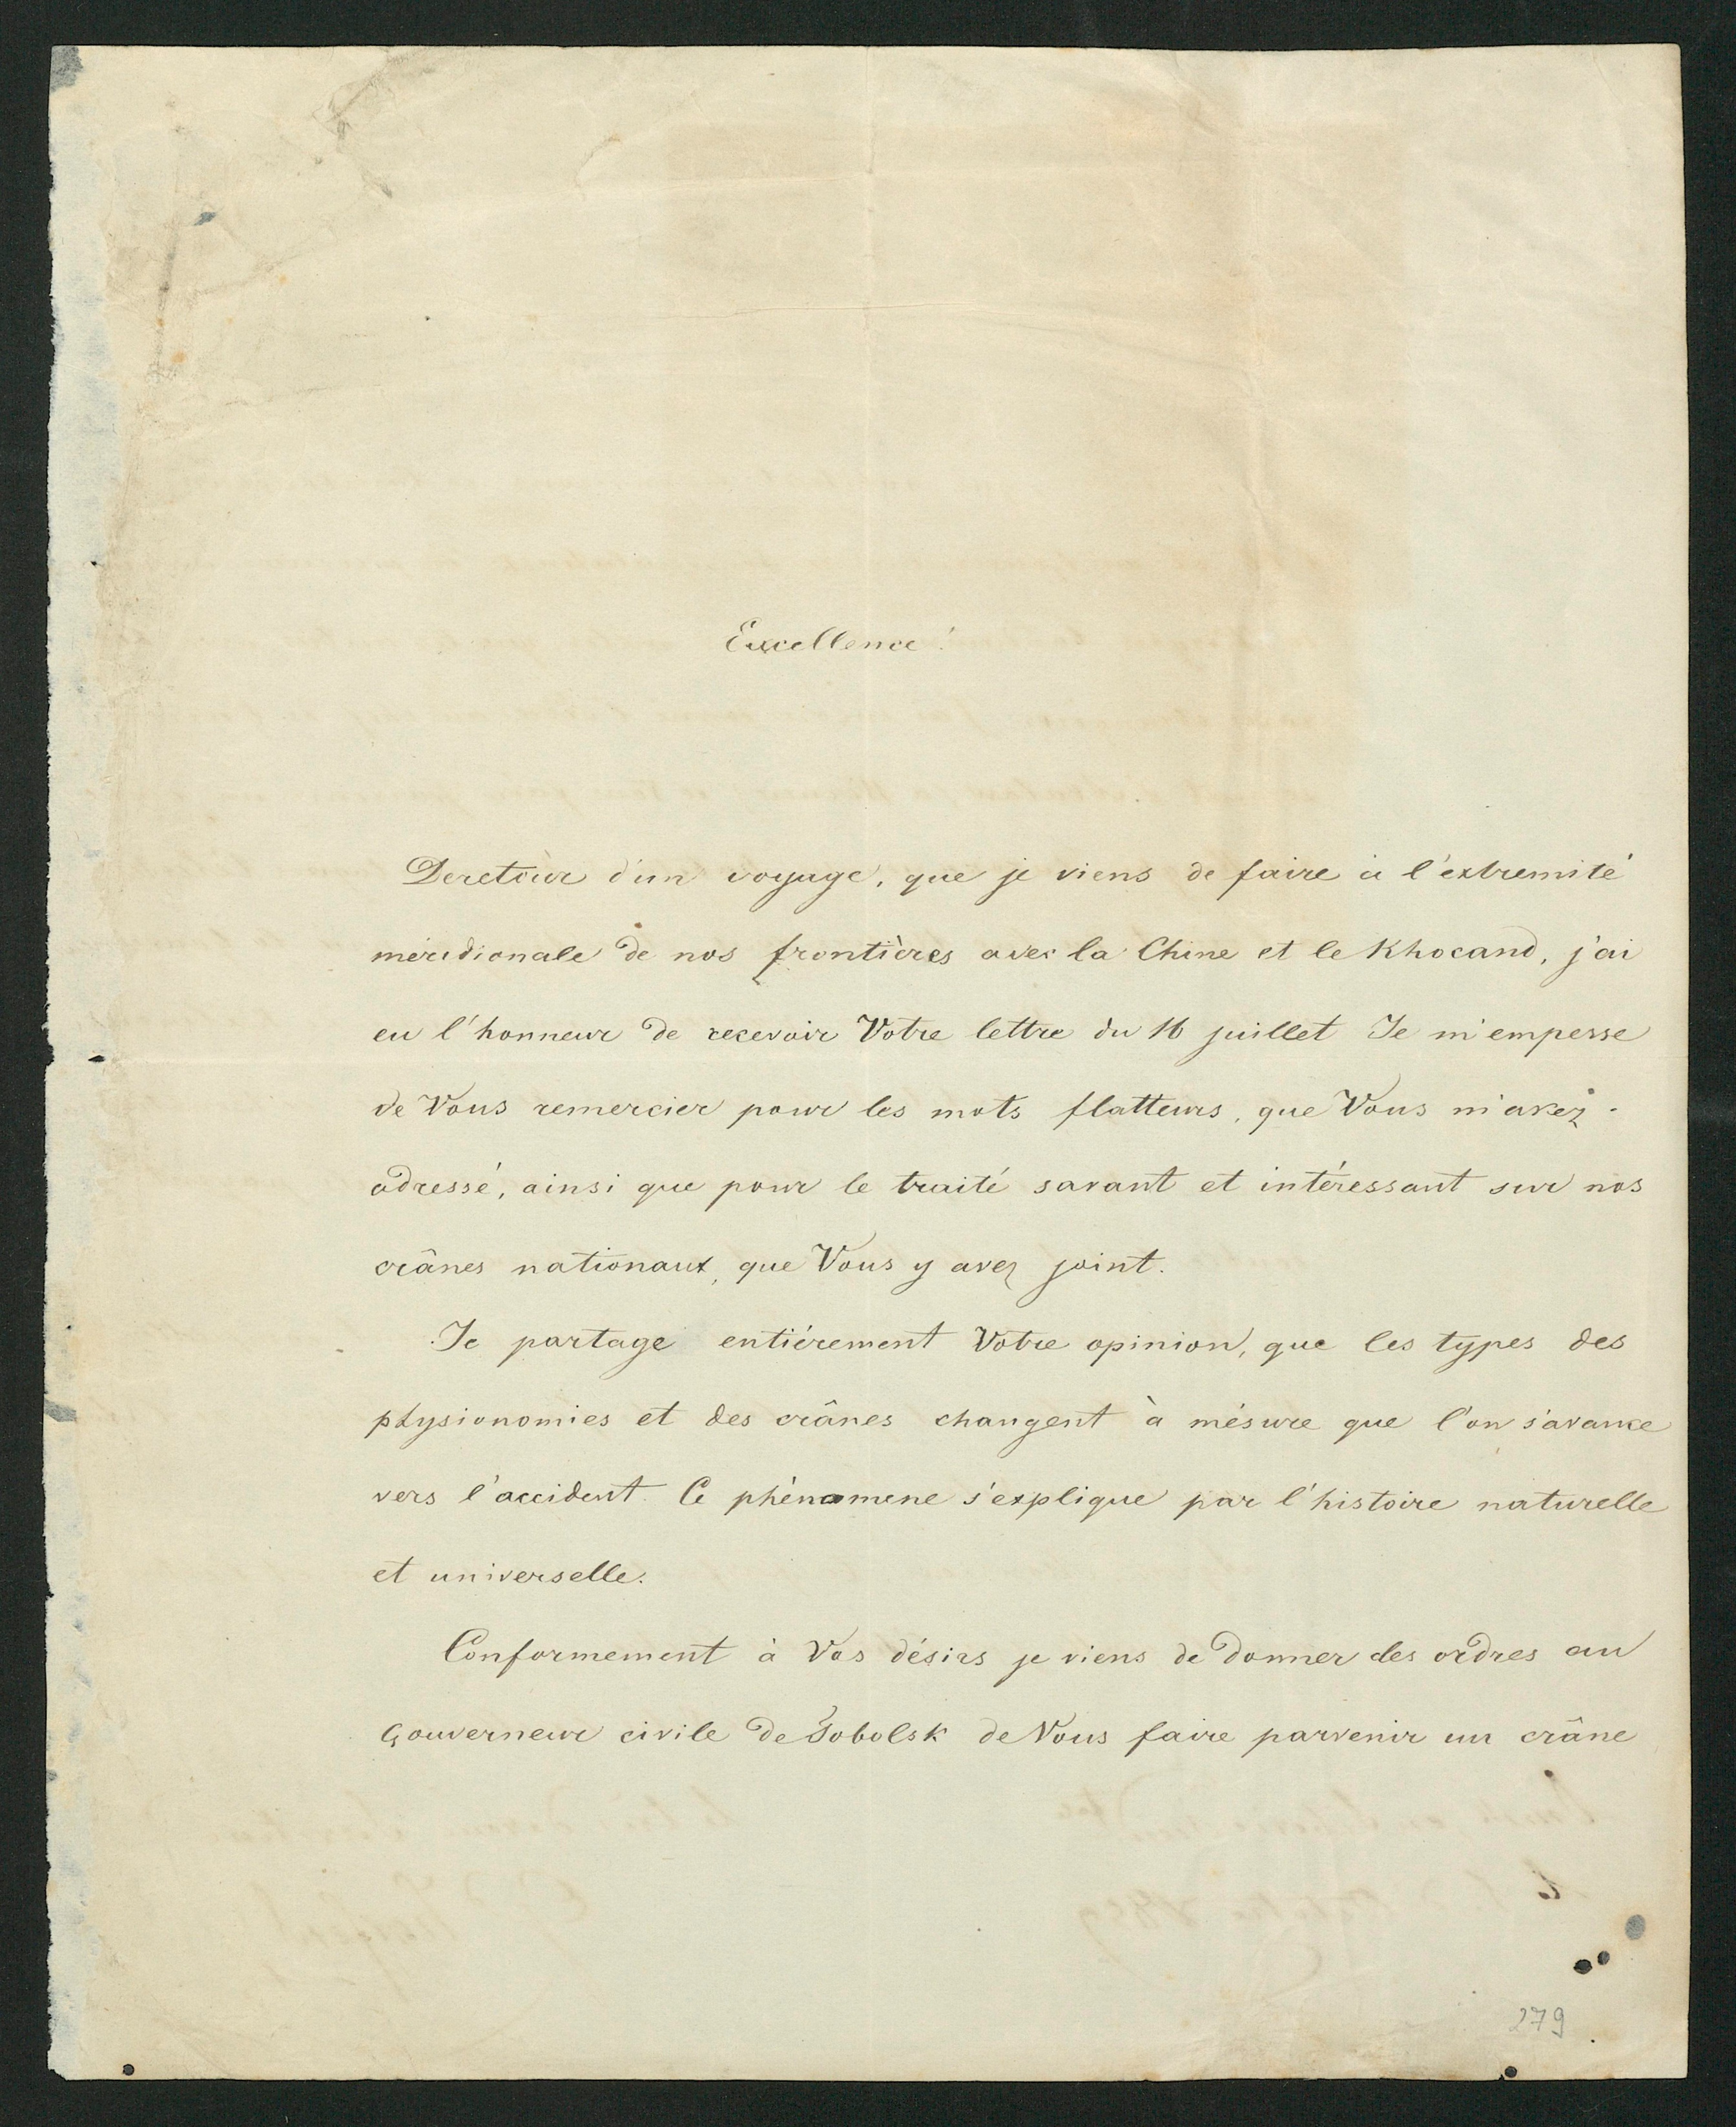 Excellence!
Deretour d'un voyage, que je viens de faire à l'extremité
méridionale de nos frontières avec la Chine et le Khocand, j'ai
eu l'honneur de recevoir Votre lettre du 16 juillet Je m'empesse
de Vous remercier pour les mots flatteurs, que Vous m'avez
adressé, ainsi que pour le traité savant et intéressant sur nos
crânes nationaux, que Vous y avez joint.
Je partage entiérement Votre opinion, que les types des
physionomies et des crânes changent à mésure que l'on s'avance
vers l'accident. Ce phénomene s'explique par l'histoire naturelle
et universelle.
Conformement à Vos désirs je viens de donner des ordres au
Gouverneur civile de Tobolsk de Vous faire parvenir un crâne
279